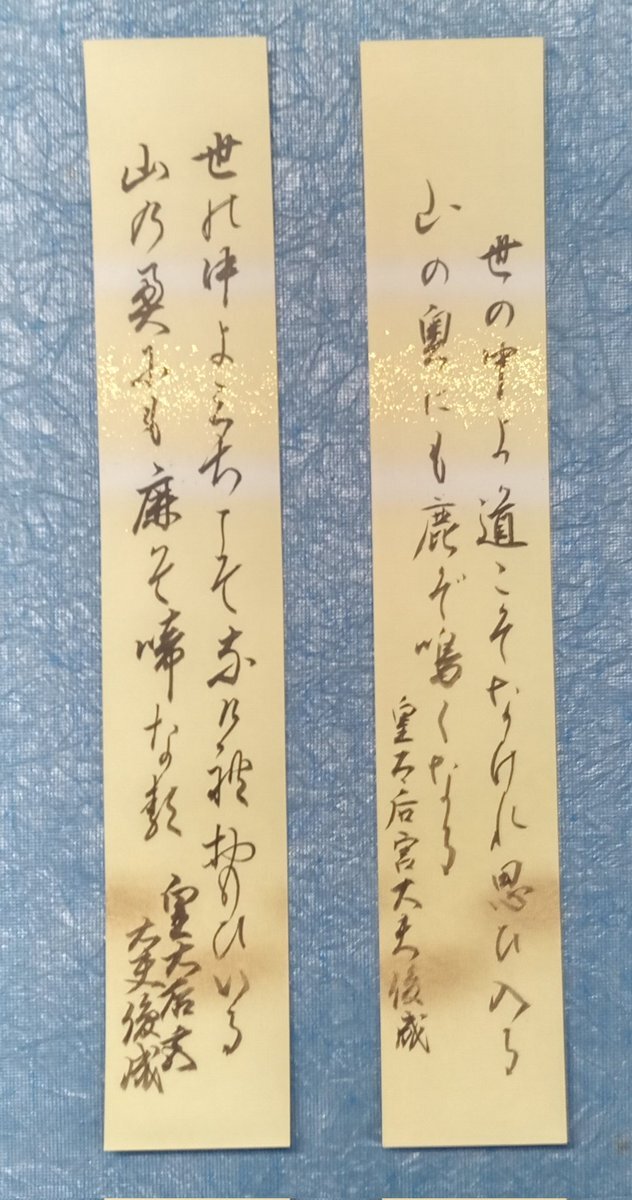 世の中よ道こそなけれ思ひ入る
山の奥にも鹿ぞ鳴くなる
皇太后宮大夫俊成
世の中よみちこそなけれおもひいる
山乃奥にも鹿そ啼なる
皇太后宮
大夫俊成